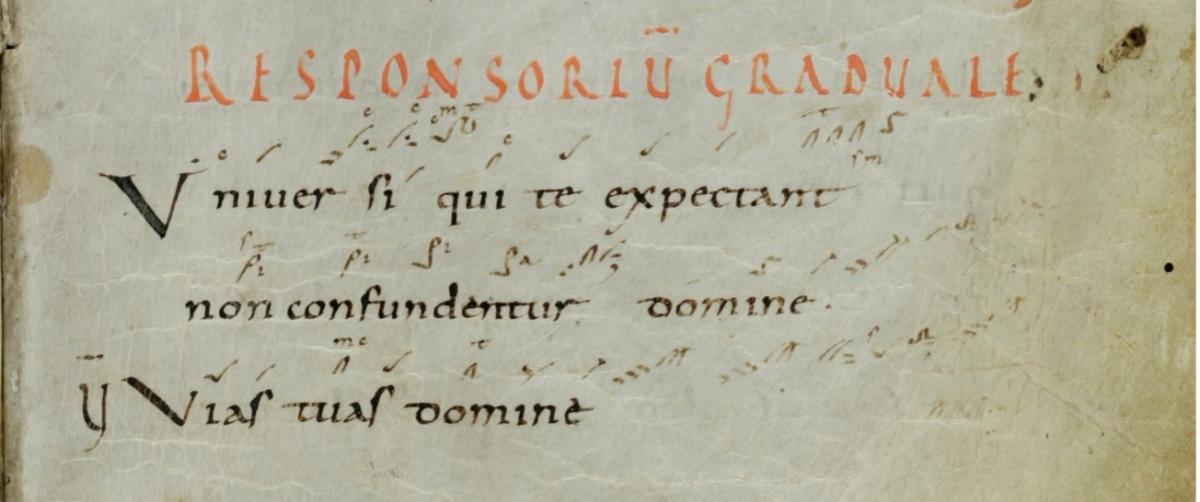 RESPONSORIU̅ GRADUALE.
Vniuersi qui te expectant
non confundentur domine.
V̅ Vias tuas domine